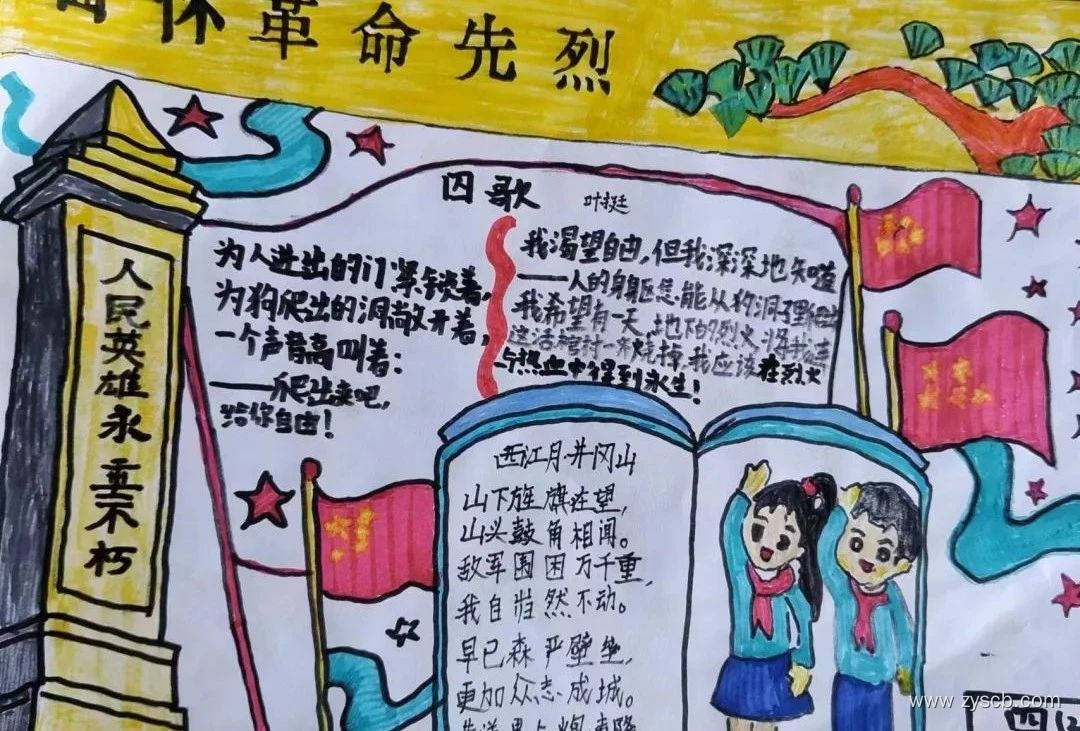 怀革命先烈
人民英雄永垂不朽
囚歌 叶挺
为人进出的门紧锁着,
为狗爬出的洞敞开着,
一个声音高叫着:
——爬出来吧,
给你自由!
我渴望自由,但我深深地知道
——人的身躯怎能从狗洞里爬出
我希望有一天,地下的烈火,将我连
这活棺材一齐烧掉,我应该在烈火
与热血中得到永生!
西江月·井冈山
山下旌旗在望,
山头鼓角相闻。
敌军围困万千重,
我自岿然不动。
早已森严壁垒,
更加众志成城。
www.zyscb.com
四